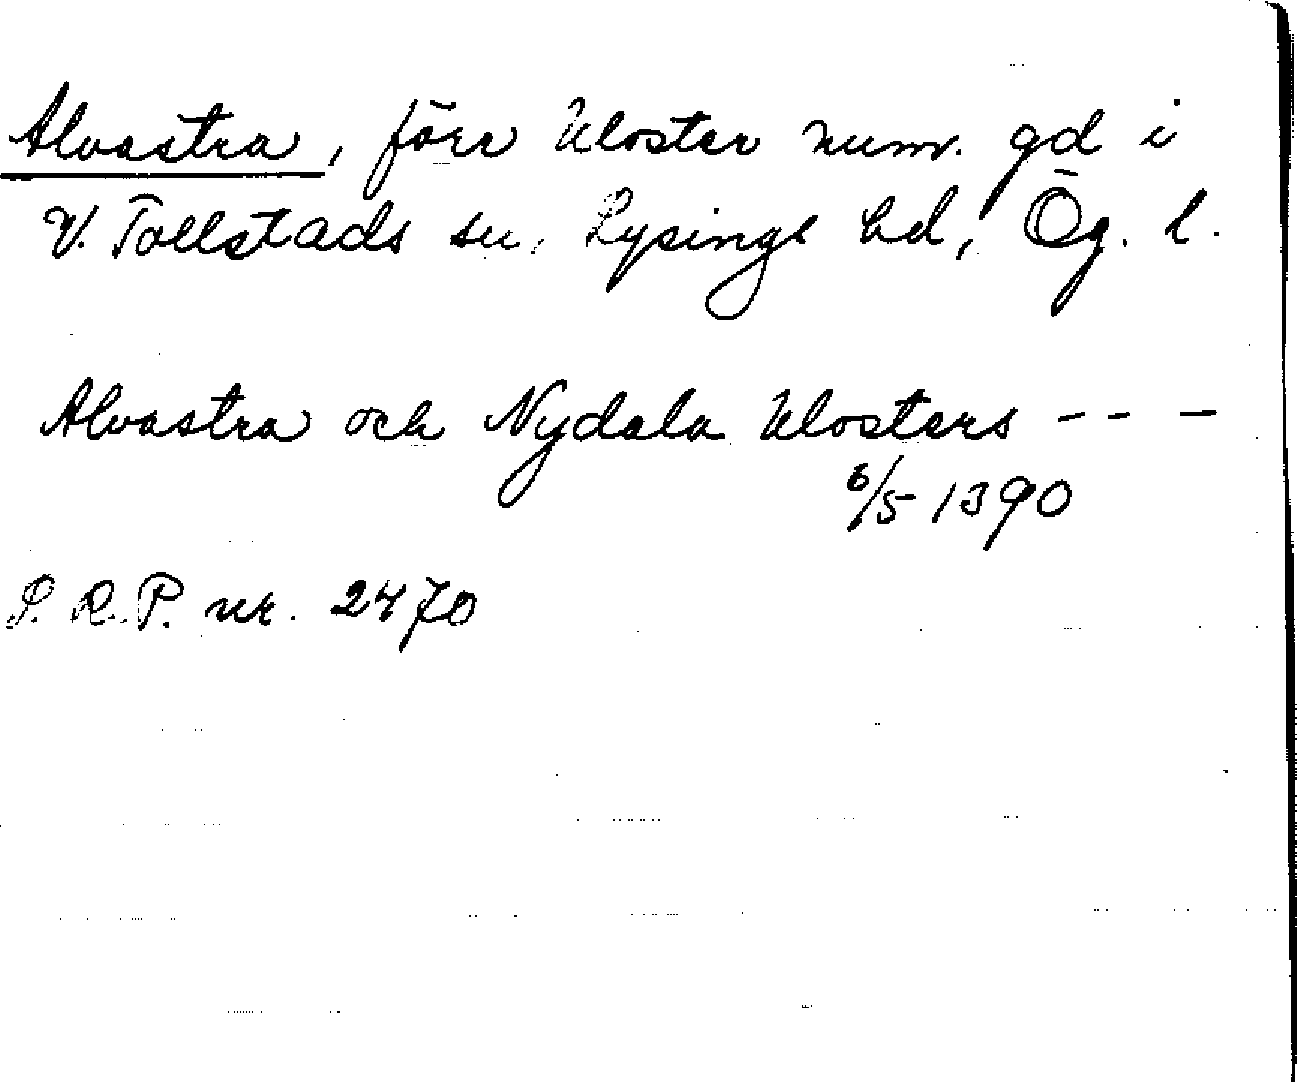 Alvastra, förr kloster num. gd i
V. Tollstads sn, Lysings hd, Ög. l.
Alvastra och Nydala klosters - - -
6/5 1390
S. R. P. nr. 2470